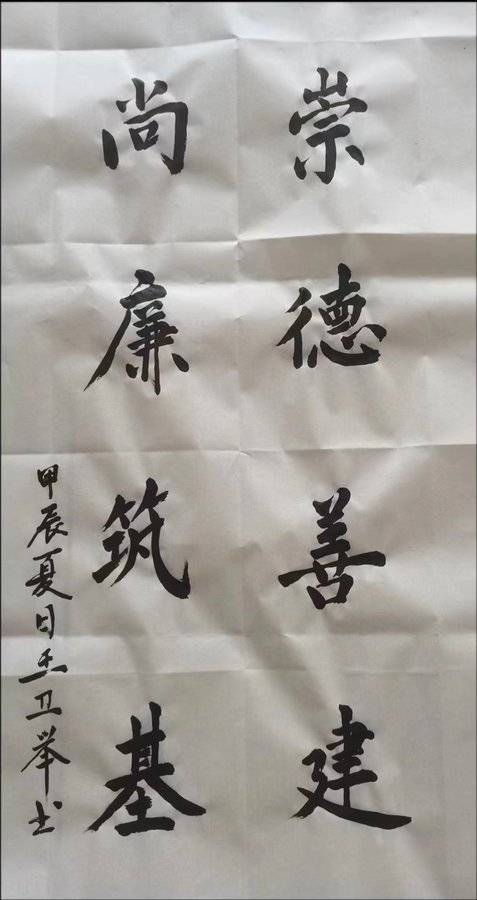 崇德善建
尚廉筑基
甲辰夏日王卫举书